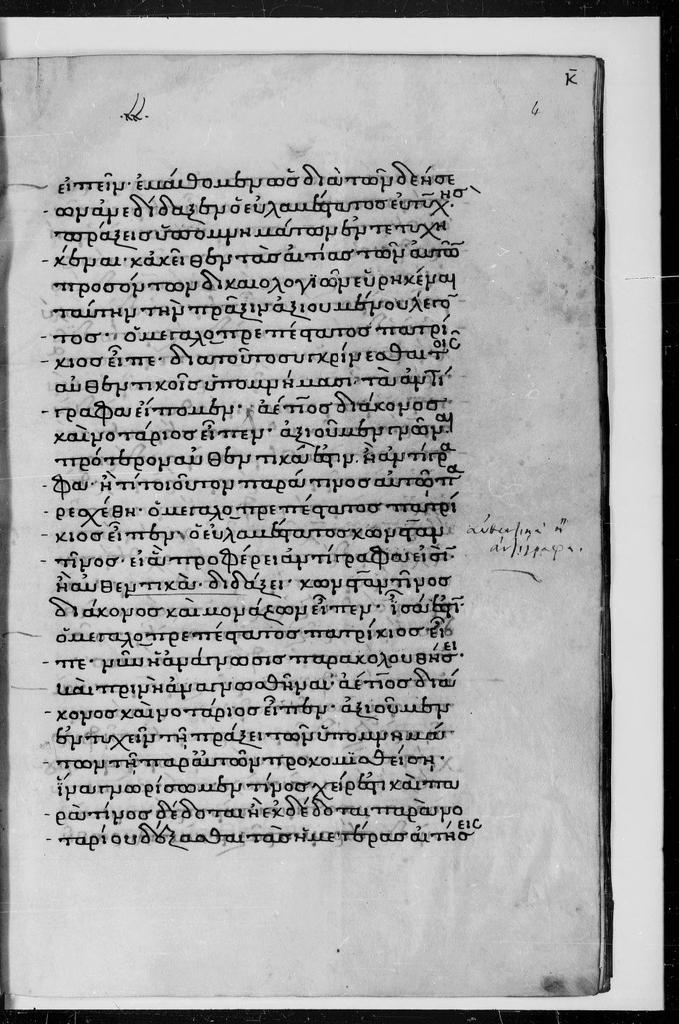 κ̄
4
εἰπεῖν· ἐμάθομεν ὡς διὰ τῶν δεήσε
ων ἃμ ἐδίδαξεν ὁ εὐλαβέστατος εὐτυχὴς·
πράξεις ὑπομνημάτων ἐντετυχη
κέναι· κἀκεῖθεν τὰς αἰτίας τῶν αὐτῶ
προσόντων δικαιολογϊῶν εὑρηκέναι
ταύτην τὴν πρᾶξιν ἀξιουμένου λέγον
τος· ὁ μεγαλοπρεπέστατος πατρί
κιος εἶπε· διὰ τοῦτο συγκρίνεσθαι τοῖς
αὐθεντικοῖς ὑπομνήμασι· τὰ ἀντί
γραφα εἴπομεν· ἀέτιος διάκονος
καὶ νοτάριος εἶπεν· ἀξιοῦμεν γνῶναι
πρότερον αὐθεντικά ἐστιν· ἢ ἀντίγρα
φα· ἢ τί τοιοῦτον παρά τινος αὐτῶ πα
ρεσχέθη· ὁ μεγαλοπρεπέστατος πατρί
κιος εἶπεν· ὁ εὐλαβέστατος κωνσταν
τῖνος· εἰ ἃ προφέρει ἀντίγραφα εἰσὶ·
ἢ αὐθεντικὰ· διδάξει· κωνσταντῖνος
διάκονος καὶ μονάζων εἶπεν· ἴσα ἐστί·
ὁ μεγαλοπρεπέστατος πατρίκιος εἶ
πε· νῦν ἡ ἀνάγνωσις παρακολουθήσει·
καὶ πρὶν ἢ ἀναγνωσθῆναι· ἀέτιος διά
κονος καὶ νοτάριος εἶπεν· ἀξιοῦμεν
ἐντυχεῖν τῇ πράξει τῶν ὑπομνημά
των τῇ παρ' αὐτῶν προκομισθείση·
ἵνα γνωρίσωμεν τίνος χείρ ἐστι καὶ πα
ρὰ τίνος δέδοται ἢ ἐκδέδοται παρὰ νο
ταρίου δόξασθαι τὰς ἡμετέρας αἰτήσεις
αὐθεντικὰ ἢ
ἀντίγραφα.